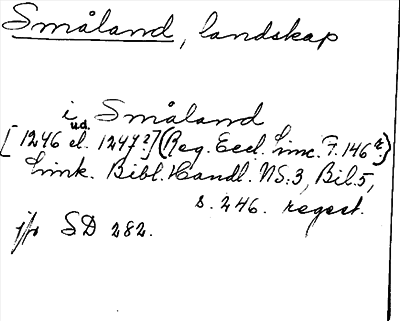 Småland, landskap
i Småland
u.d.
[1246 el. 1247?] (Reg. Eccl. Linc. F. 146r)
Link. Bibl. Handl. NS:3, Bil. 5,
s. 246. regest.
jfr SD 282.